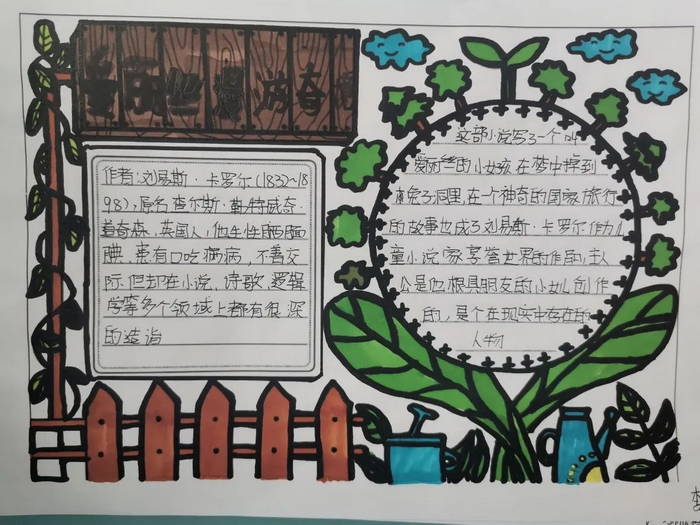 漫游奇
作者:刘易斯·卡罗尔(1832~18
98),原名查尔斯·勒特威奇·
道奇森,英国人,他生性腼腆
腆,患有口吃病,不善交
际.但却在小说、诗歌、逻辑
学等多个领域上都有很深
的造诣
这部小说写了一个叫
爱丽丝的小女孩在梦中掉到
兔子洞里,在一个神奇的国家旅行
的故事也成了刘易斯·卡罗尔作为儿
童小说家享誉世界的作品,主人
公是他根具朋友的小女儿创作
的,是个在现实中存在的
人物